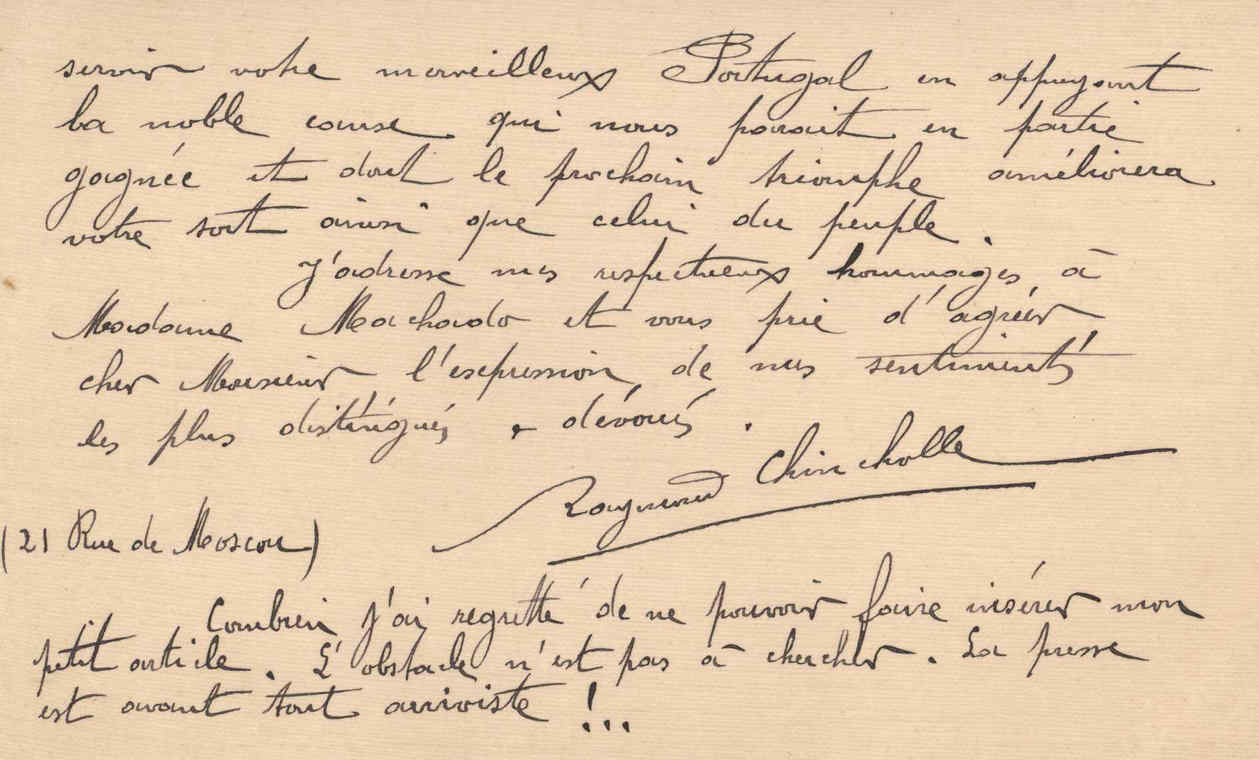 servir votre merveilleux Portugal en appuyant
la noble cause qui nous parait en partie
gagnée et dont le prochain triomphe améliorera
votre sort ainsi que celui du peuple.
J'adresse mes respectueux hommages à
Madame Machado et vous prie d'agréer
cher Monsieur l'expression de mes sentiments
les plus distingués & dévoués.
Raymond Chincholle
(21 Rue de Moscou)
Combien j'ai regretté de ne pouvoir faire insérer mon
petit article. L'obstacle n'est pas à chercher. La presse
est avant tout arriviste !...